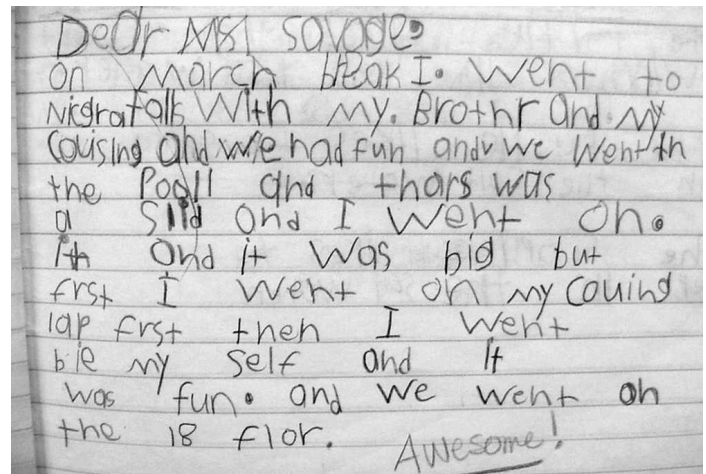 Dear MSl savage.
on March bleak I. went to
Nigrafalls With my. Brothr and my
Couising and we had fun and we went th
the Pooll and thars was
a Slid and I went on.
ith and it was big but
frst I went on my Couing
lap frst then I went
bie my self and it
was fun. and we went on
the 18 flor.
Awesome!